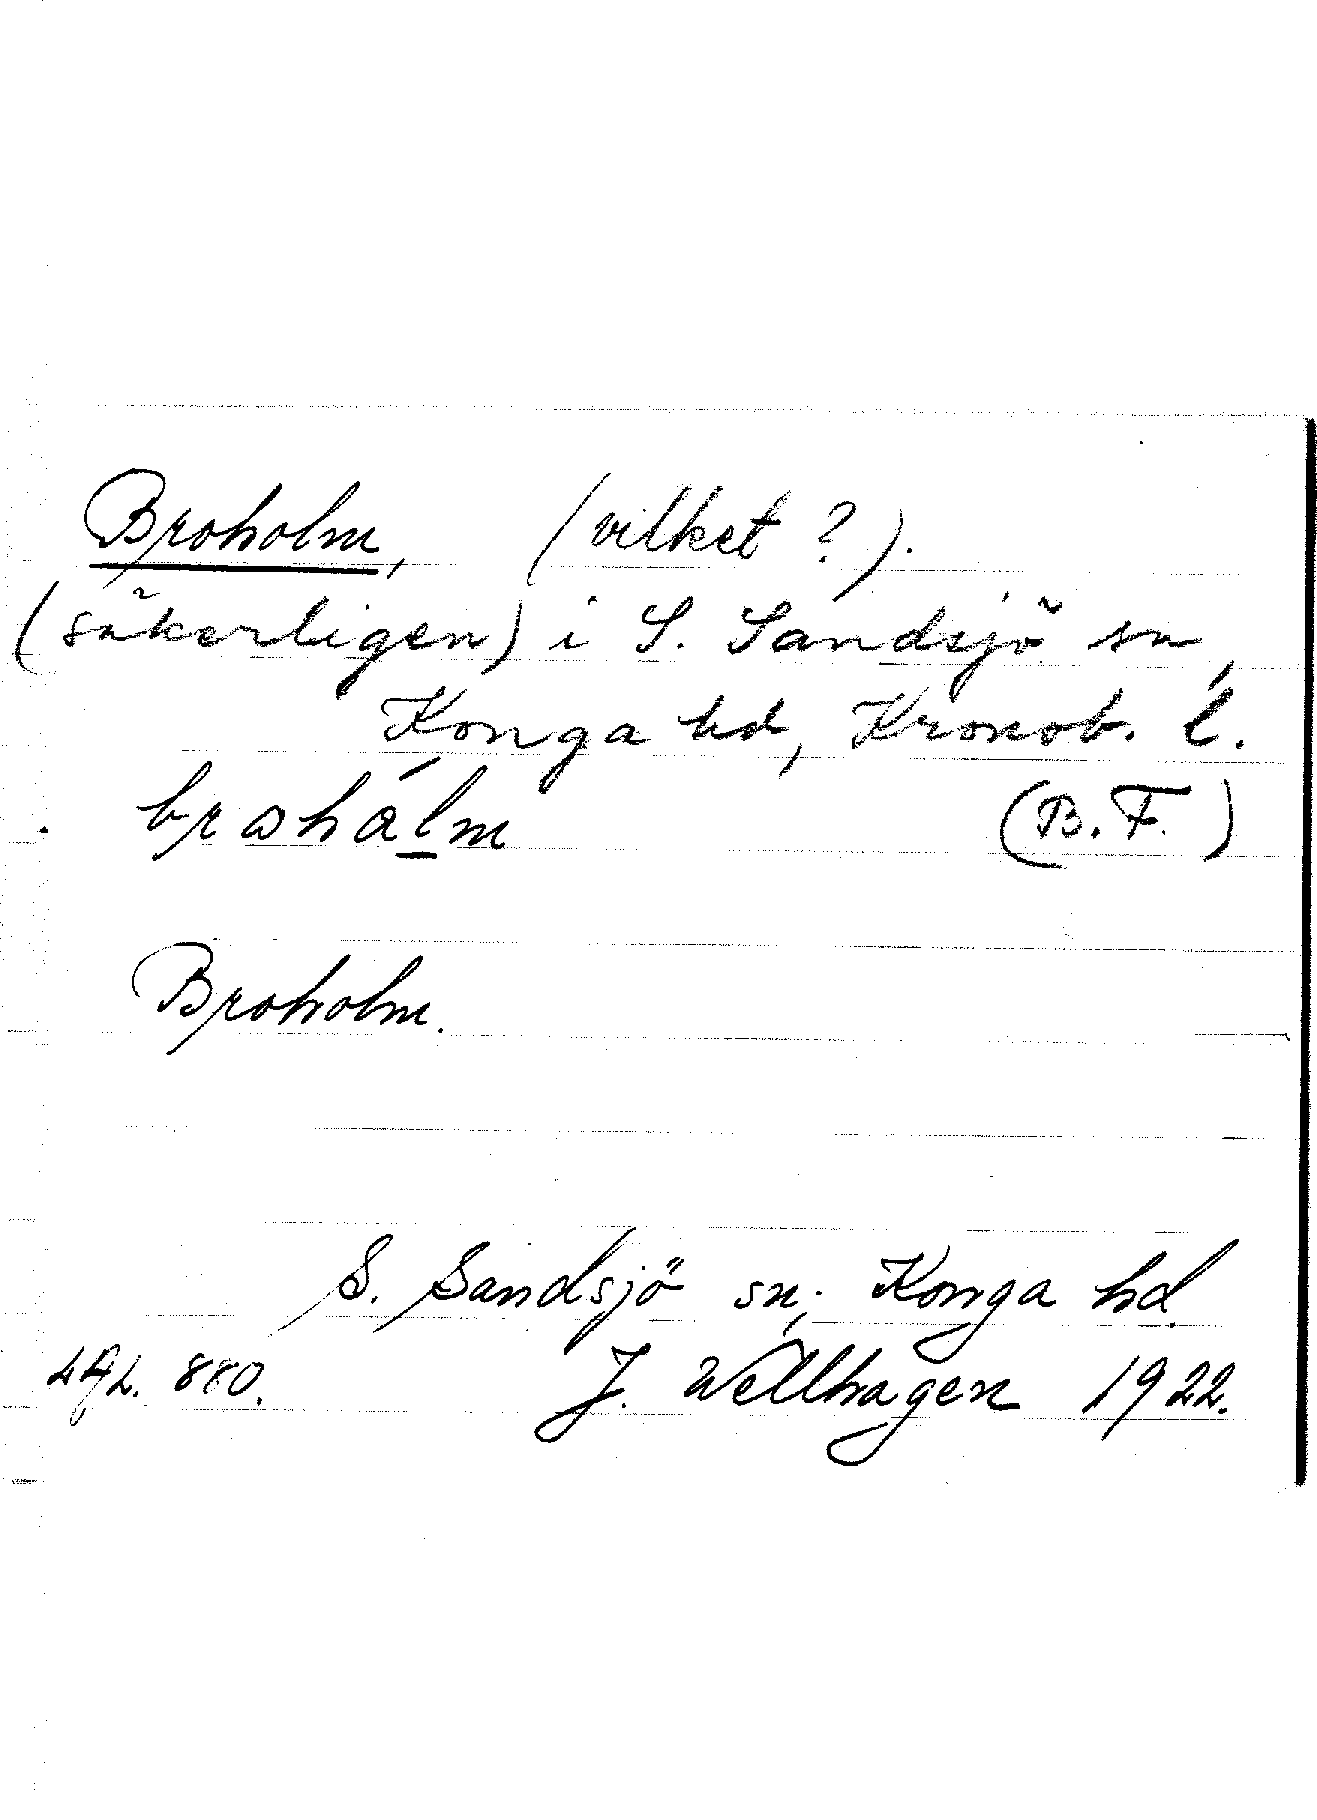 Broholm, (vilket ?).
(säkerligen) i S. Sandsjö sn,
Konga hd, Kronob. l.
(B.F.)
Broholm.
S. Sandsjö sn; Konga hd.
880. J. Wellhagen 1922.